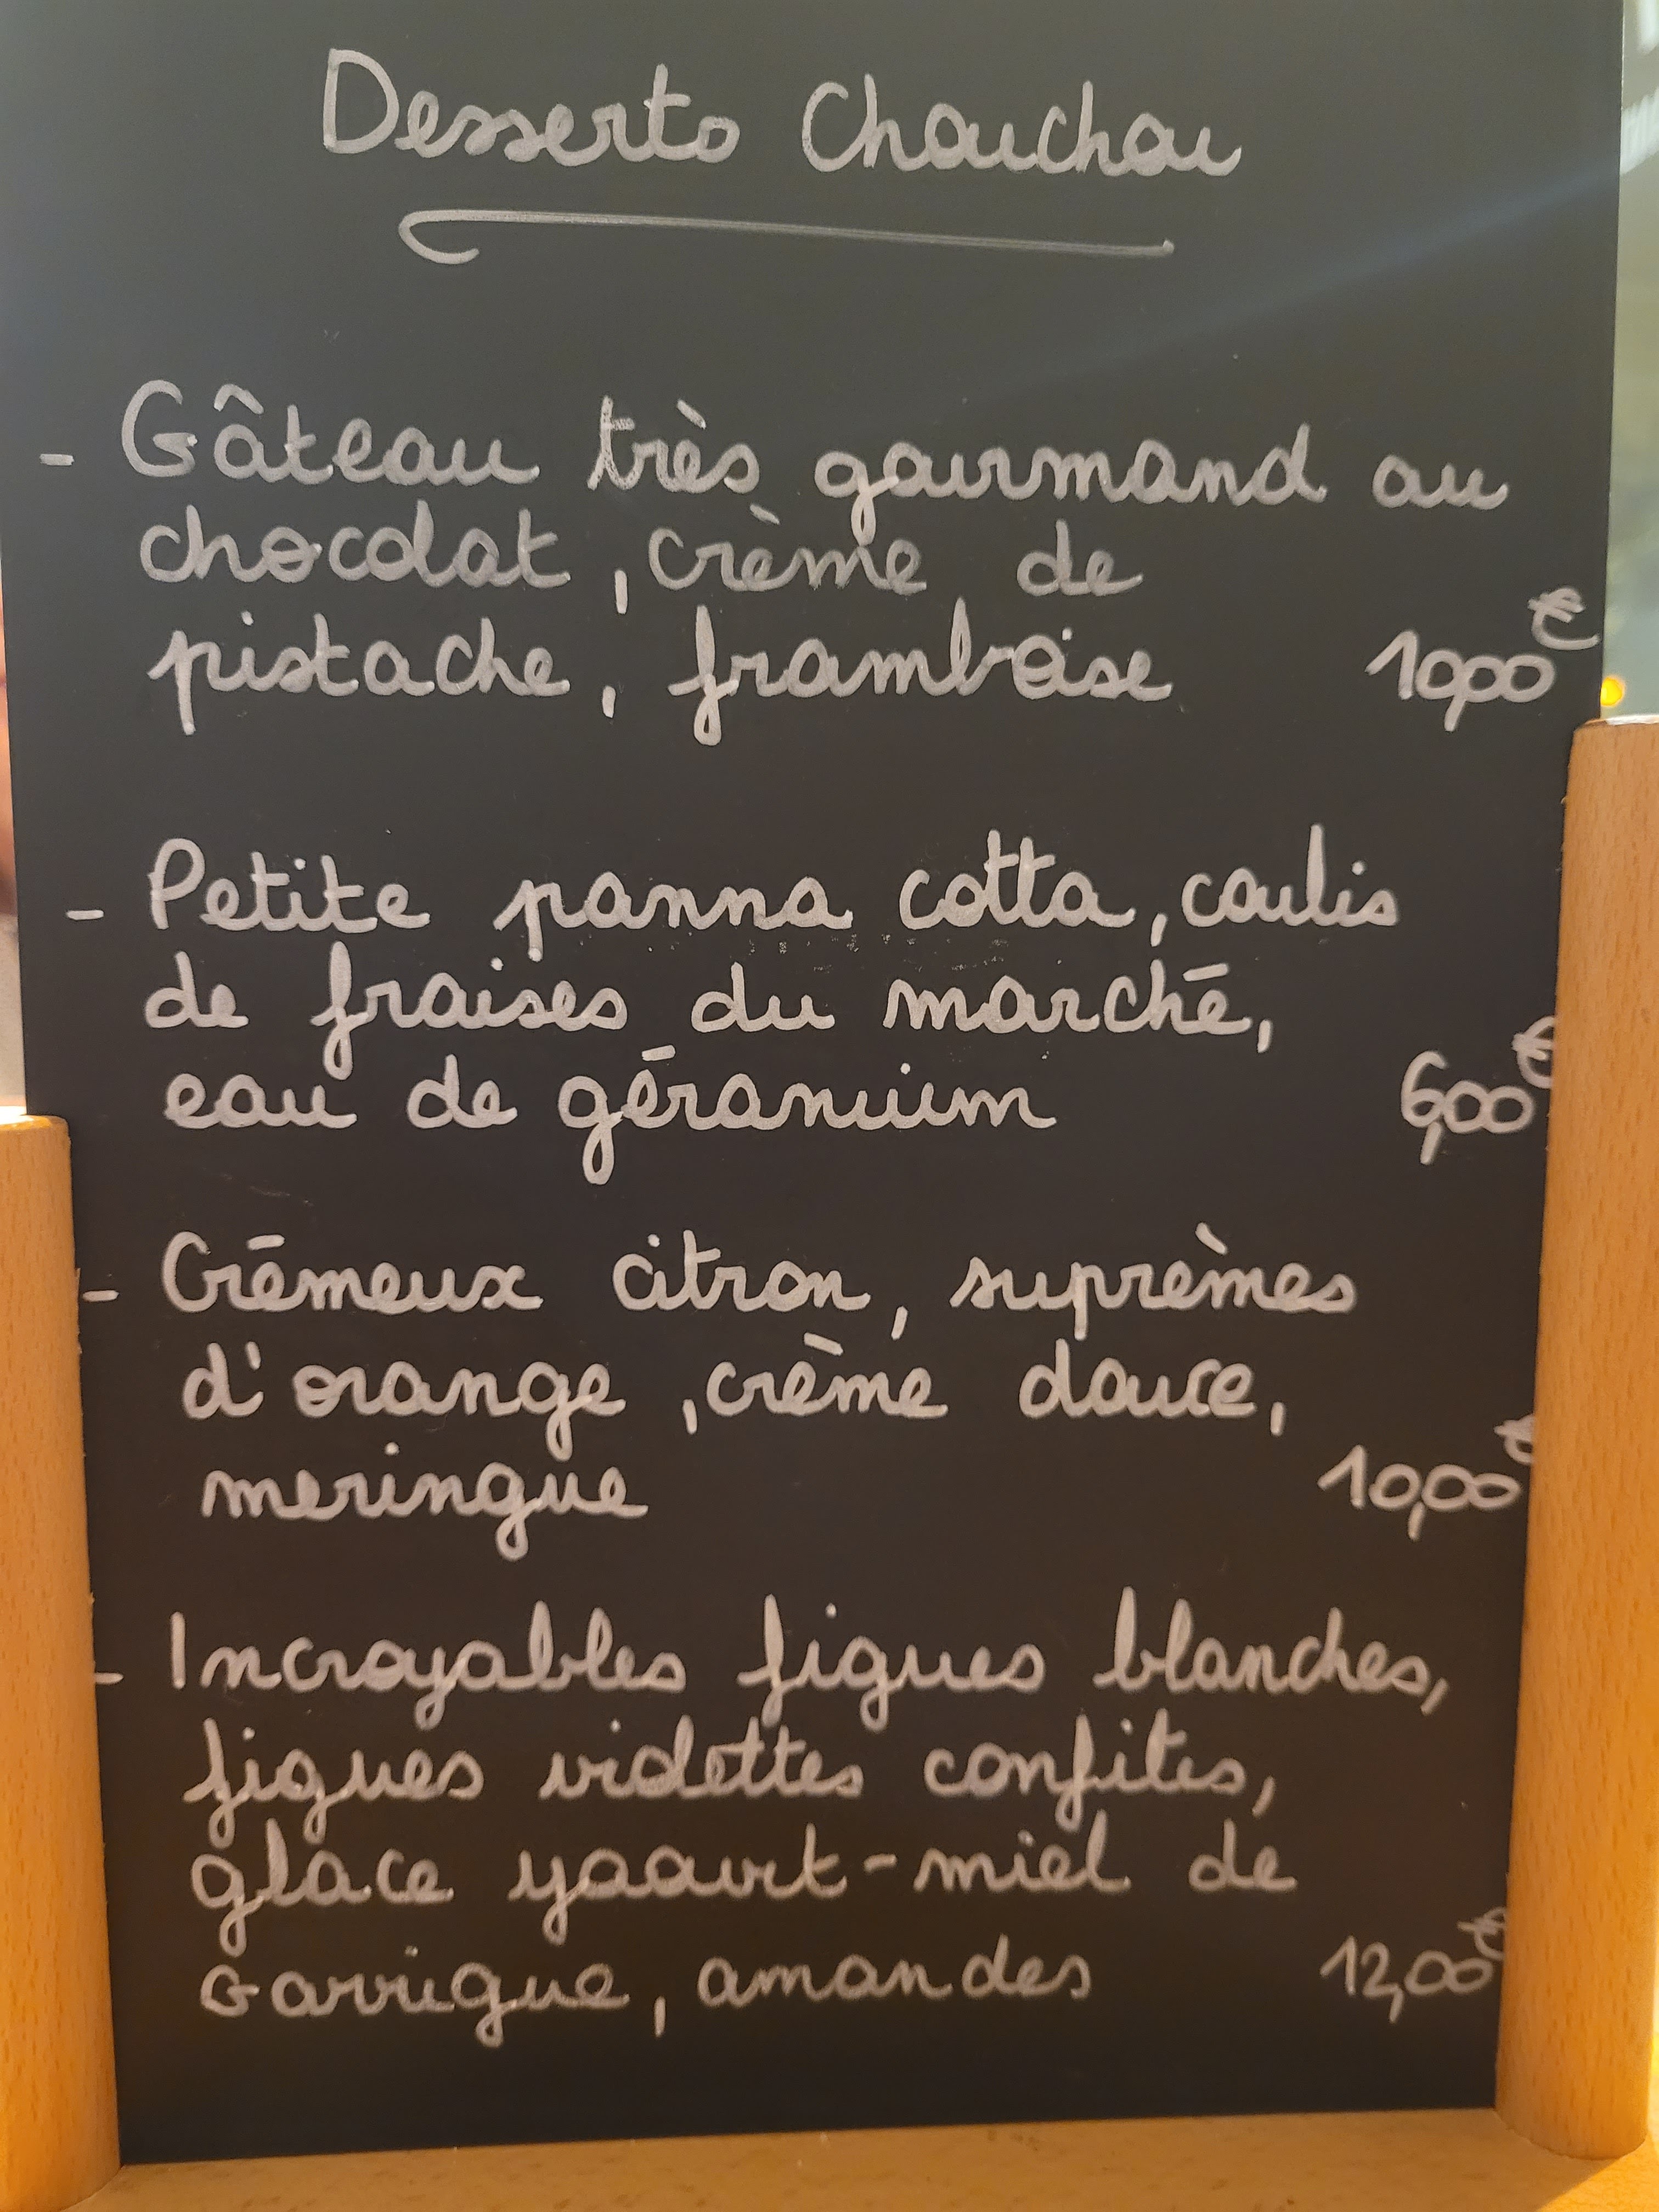 Desserts Chouchou
- Gâteau très gourmand au
chocolat, crème de
pistache, framboise 10,00€
- Petite panna cotta, coulis
de fraises du marché,
eau de géranium 6,00€
- Crémeux citron, suprèmes
d'orange, crème douce,
meringue 10,00€
- Incroyables figues blanches,
figues violettes confites,
glace yaourt-miel de
Garrigue, amandes 12,00€